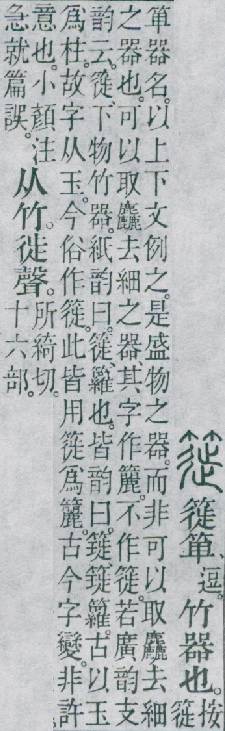 簁 簁箄、逗。竹器也。按簁
箄器名。以上下文例之。是盛物之器。而非可以取麤去細
之器也。可以取麤去細之器、其字作籭。不作簁。若廣韵支
韵云。簁、下物竹器。紙韵曰。簁、籮也。皆韵曰。籮。古以玉
爲柱。故字从玉。今俗作簁。此皆用簁爲籭。古今字變。非許
意也。小顏注
急就篇誤。
从竹。徙聲。所綺切。
十六部。